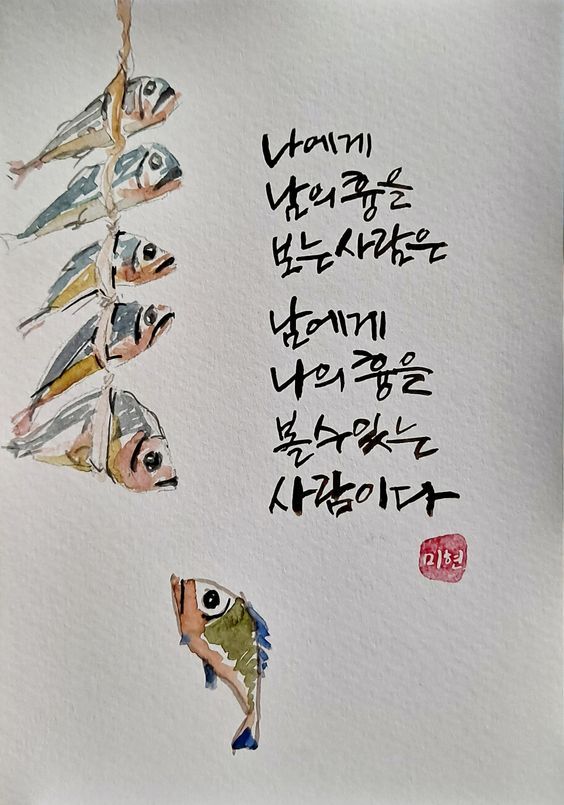 나에게
남의 흉을
보는 사람은
남에게
나의 흉을
볼 수 있는
사람이다
미현